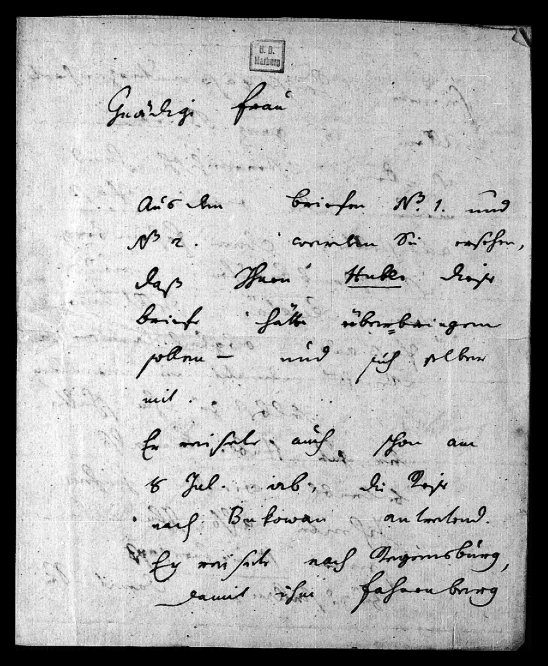 U. B.
Marburg
Gnädige Frau
Aus den briefen No. 1. und
No 2. werden Sie ersehen,
daß Ihnen Hukka diese
briefe hätte überbringen
sollen – und sich selber
mit.
Er reisete auch schon am
8 Jul. ab, die Reise
nach Bukowan antretend.
Er reisete nach Regensburg,
damit ihn Fahnenberg